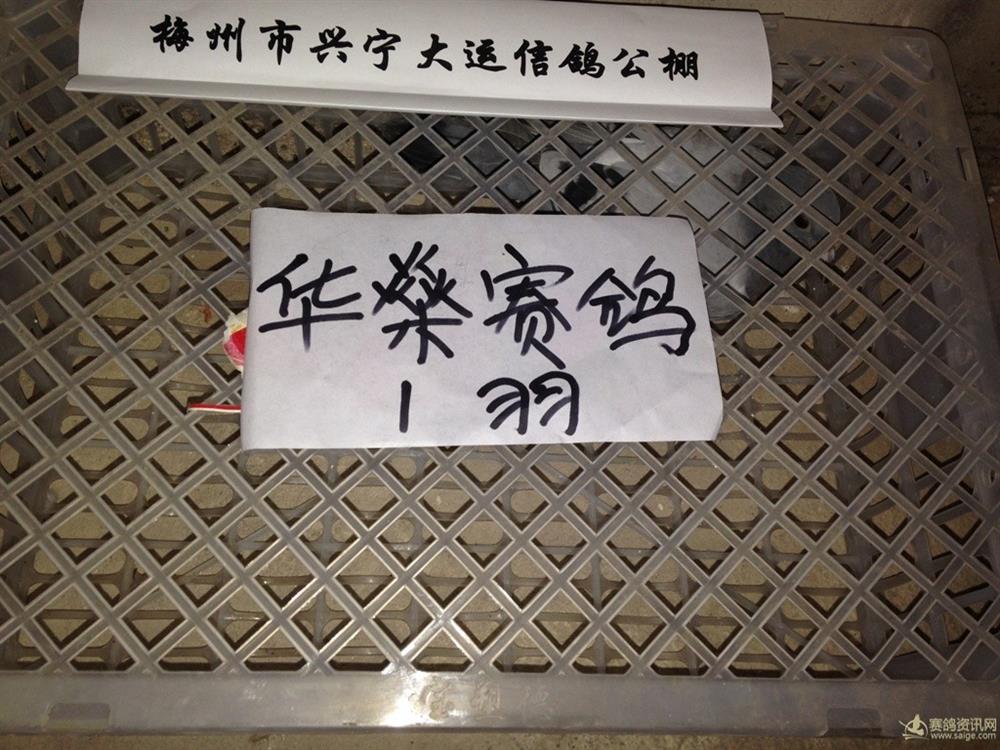 梅州市兴宁大运信鸽公棚
华燊赛鸽
1羽
赛鸽资讯网
www.saige.com